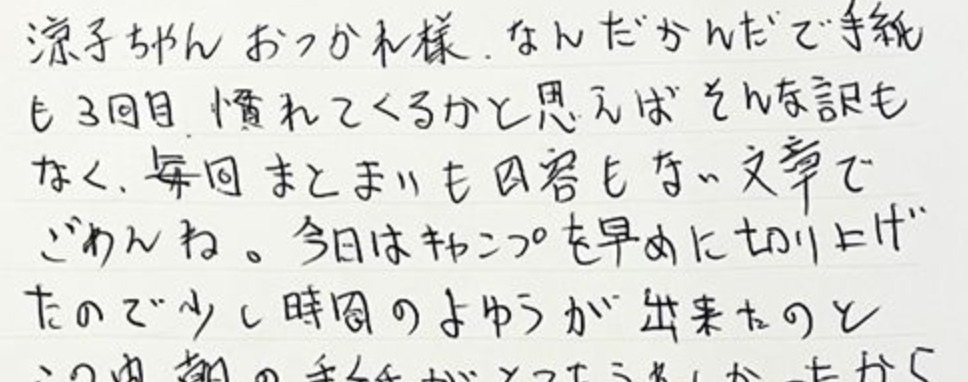 涼子ちゃん おつかれ様. なんだかんだで手紙
も3回目. 慣れてくるかと思えば そんな訳も
なく、毎回 まとまりも内容もない文章で
ごめんね。今日はキャンプを早めに切り上げ
たので少し時間のよゆうが出来たのと
朝の手紙がとってもうれしかったから